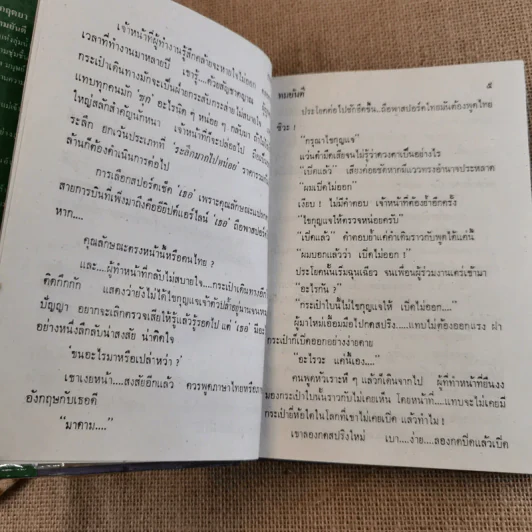 เจ้าหน้าที่ผู้ทำงานรู้สึกคล้ายจะหายใจไม่ออก
เวลาที่ทำงานมาหลายปี เขารู้....ด้วยสัญชาตญาณ
กระเป๋าเดินทางมักจะเป็นฝ่ายกระสับกระส่าย ไม่สบายใจ
แทบทุกคนมัก 'พูด' อะไรนิด ๆ หน่อย ๆ กลบมา ถ้าไม่ใช่
ใหญ่สลักสำคัญนักหนา เจ้าหน้าที่ก็จะปล่อยไป
ระลึก ยกเว้นประเภทที่ 'ระลึกมากไปหน่อย' ราคารวม
ล้านก็ต้องดำเนินการต่อไป
การเลือกสปอร์ตเช็ค 'เธอ' เพราะคุณลักษณะแปลก
สายการบินที่เพิ่งมาถึงคืออียิปต์แอร์ไลน์ 'เธอ' ถือพาสปอร์ต
หาก....
คุณลักษณะตรงหน้านี้หรือคนไทย ?
และ....ผู้ทำหน้าที่กลับไม่สบายใจ....กระเป๋าเดินทางอีก
ติดกึกกัก แสดงว่ายังไม่ได้ไขกุญแจเจ้าตัวปล้ำอยู่นานจน
ปัญญา อยากจะเลิกตรวจเสียให้รู้แล้วรู้รอดไป แต่ 'เธอ' มีอะ
อย่างหนึ่งลึกลับ น่าสงสัย น่าติดใจ
"ขนอะไรมาหรือเปล่าหว่า ?"
เขาเงยหน้า....สงสัยอีกแล้ว ควรพูดภาษาไทยหรือภา
อังกฤษกับเธอดี
"มาดาม...."
ทมยันตี ๕
ประโยคต่อไปชักอึดขึ้น...ถือพาสปอร์ตไทยมันต้องพูดไทย
ซิวะ !
"กรุณาไขกุญแจ"
แว่นดำมืดเสียจนไม่รู้ว่าดวงตาเป็นอย่างไร
"เบิ๊ดแล้ว" เสียงค่อยชัดหากมีแววทรงอำนาจประหลาด
"ผมเบิ๊ดไม่ออก"
เงียบ ! ไม่มีคำตอบ เจ้าหน้าที่ต้องย้ำอีกครั้ง
"ไขกุญแจให้ตรวจหน่อยครับ"
"เบิ๊ดแล้ว" คำตอบย้ำแค่คำเดิมราวกับพูดได้แค่นี้
"ผมบอกแล้วว่า เบิ๊ดไม่ออก !"
ประโยคนั้นเริ่มฉุนเฉียว จนเพื่อนผู้ร่วมงานแคร่เข้ามา
"อะไรกัน ?"
"กระเป๋าใบนี้ไม่ไขกุญแจให้ เบิ๊ดไม่ออก...."
ผู้มาใหม่เอื้อมมือไปกดสปริง.....แทบไม่ต้องออกแรง ฝา
กระเป๋าก็เบิ๊ดออกอย่างง่ายดาย
"อะไรวะ แค่นี้เอง...."
คนพูดหัวเราะหึ ๆ แล้วก็เดินจากไป ผู้ที่ทำหน้าที่ยืนงง
มองกระเป๋าใบนั้นราวกับไม่เคยเห็น โดยหน้าที่....แทบจะไม่เคยมี
กระเป๋ายี่ห้อใดในโลกที่เขาไม่เคยเบิ๊ด แล้วทำไม !
เขาลองกดสปริงใหม่ เบา....ง่าย....ลองกดปิดแล้วเบิ๊ด